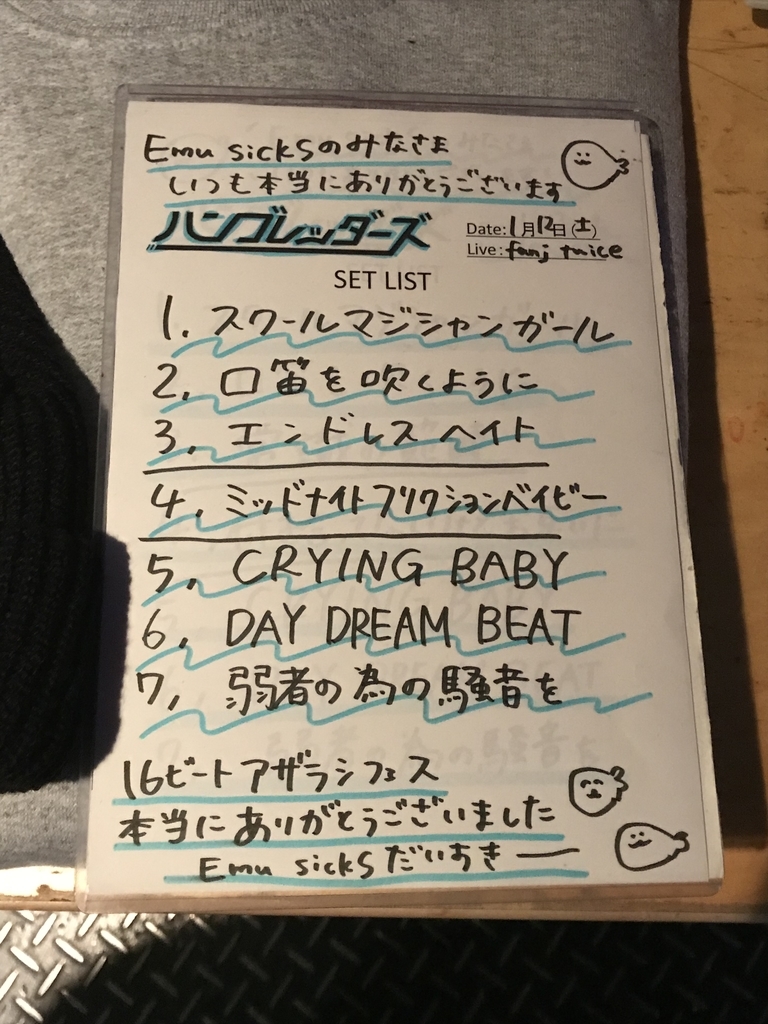 Emu sickSのみなさま
いつも本当にありがとうございます
ハンブレッダーズ
Date: 1月12日(土)
Live: fanj twice
SET LIST
1. スクールマジシャンガール
2. 口笛を吹くように
3. エンドレスヘイト
4. ミッドナイトフリクションベイビー
5. CRYING BABY
6. DAY DREAM BEAT
7. 弱者の為の騒音を
16ビートアザラシフェス
本当にありがとうございました
Emu sickSだいすきー